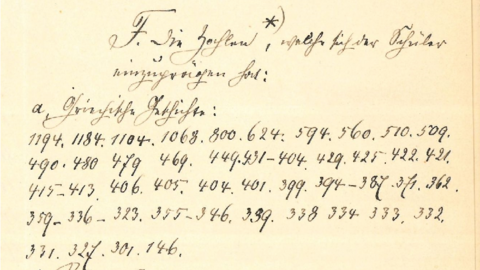 F. Die Zahlen *), welche sich der Schüler
einzuprägen hat:
a, Griechische Geschichte:
1194. 1184. 1104. 1068. 800. 624. 594. 560. 510. 509.
490. 480 479 469. 449. 431-404. 429. 425. 422. 421.
415-413. 406. 405. 404. 401. 399. 394-387. 371. 362.
359-336-323. 355-346. 339. 338 334 333. 332.
331. 327. 301. 146.